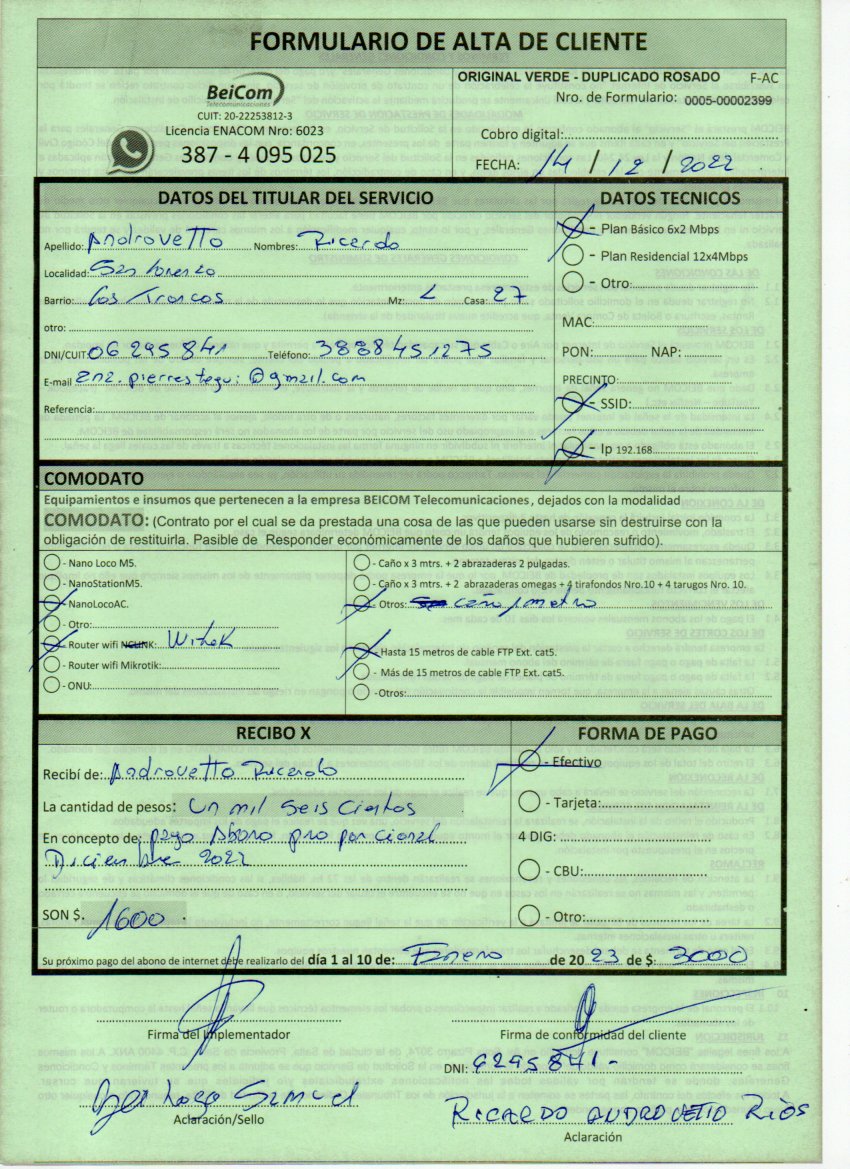 FORMULARIO DE ALTA DE CLIENTE
BeiCom
Telecomunicaciones
CUIT: 20-22253812-3
Licencia ENACOM Nro: 6023
387 - 4 095 025
ORIGINAL VERDE - DUPLICADO ROSADO F-AC
Nro. de Formulario: 0005-00002399
Cobro digital:
FECHA: 14 / 12 / 2022
DATOS DEL TITULAR DEL SERVICIO
Apellido: Androvetto Nombres: Ricardo
Localidad: San Lorenzo
Barrio: Los Troncos Mz: L Casa: 27
otro:
DNI/CUIT: 06 295 841 Teléfono: 3888451275
E-mail ana.pierrestegui@gmail.com
Referencia:
DATOS TECNICOS
- Plan Básico 6x2 Mbps
- Plan Residencial 12x4Mbps
- Otro:
MAC:
PON: NAP:
PRECINTO:
- SSID:
- Ip 192.168.
COMODATO
Equipamientos e insumos que pertenecen a la empresa BEICOM Telecomunicaciones, dejados con la modalidad
COMODATO: (Contrato por el cual se da prestada una cosa de las que pueden usarse sin destruirse con la
obligación de restituirla. Pasible de Responder económicamente de los daños que hubieren sufrido).
- Nano Loco M5.
- NanoStationM5.
- NanoLocoAC.
- Otro:
- Router wifi Witek
- Router wifi Mikrotik:
- ONU:
- Caño x 3 mtrs. + 2 abrazaderas 2 pulgadas.
- Caño x 3 mtrs. + 2 abrazaderas omegas + 4 tirafondos Nro.10 + 4 tarugos Nro. 10.
- Otros: caño 1 metro
- Hasta 15 metros de cable FTP Ext. cat5.
- Más de 15 metros de cable FTP Ext. cat5.
- Otros:
RECIBO X
Recibí de: Androvetto Ricardo
La cantidad de pesos: Un mil seis cientos
En concepto de: pago Abono pro porcional
Diciembre 2022
SON $. 1600
FORMA DE PAGO
- Efectivo
- Tarjeta:
4 DIG:
- CBU:
- Otro:
Su próximo pago del abono de internet debe realizarlo del día 1 al 10 de: Enero de 20 23 de $: 3000
Firma del Implementador
Aclaración/Sello
Firma de conformidad del cliente
DNI: 6295841-
RICARDO ANDROVETTO RIOS
Aclaración